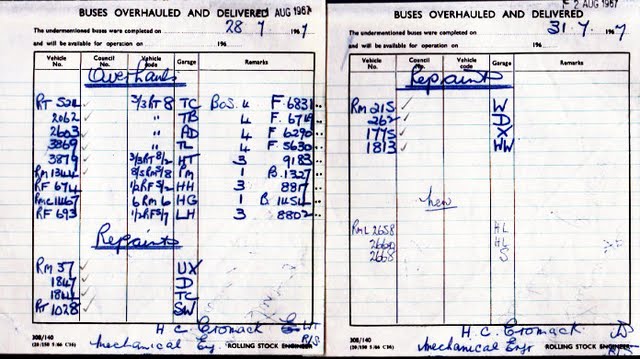 BUSES OVERHAULED AND DELIVERED AUG 1967
The undermentioned buses were completed on 28 7 1967
and will be available for operation on 196
Vehicle No. Council No. Vehicle code Garage Remarks
Overhauls
RT 521 ✓ 3/3RT8 TC BoS. 4 F 6831
2062 ✓ " TB 4 F 6719
2603 ✓ " AD 4 F 6290
3869 ✓ " TL 4 F 5630
3879 3/3RT8/2 HT 3 9183
RM 1344 ✓ PM 1 B.1327
RF 674 ✓ 1/2RF5/2 HH 3 8817
RMC 1467 ✓ 6RM6 HG 1 B.1454
RF 693 ✓ LH 3 8802
Repaints
RM 37 ✓ UX
1847 ✓ D
1844 ✓ TC
RT 1028 ✓ SW
H. C. Cromack
Mechanical Eng. ROLLING STOCK ENGINEER
308/140
BUSES OVERHAULED AND DELIVERED 2 AUG 1967
The undermentioned buses were completed on 31 7 1967
and will be available for operation on 196
Vehicle No. Council No. Vehicle code Garage Remarks
Repaints
RM 215 ✓ W
262 ✓ D
1775 ✓ X
1813 ✓ WW
new
RML 2658 HL
2660 HL
2668 S
H. C. Cromack
Mechanical Engr ROLLING STOCK ENGINEER
308/140